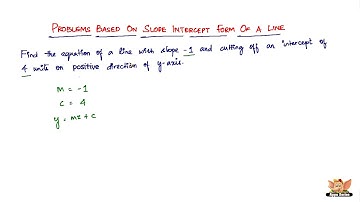 Problems Based On Slope Intercept Form Of A Line
Find the equation of a line with slope -1 and cutting off an intercept of
4 units on positive direction of y-axis.
m = -1
c = 4
y = mx + c